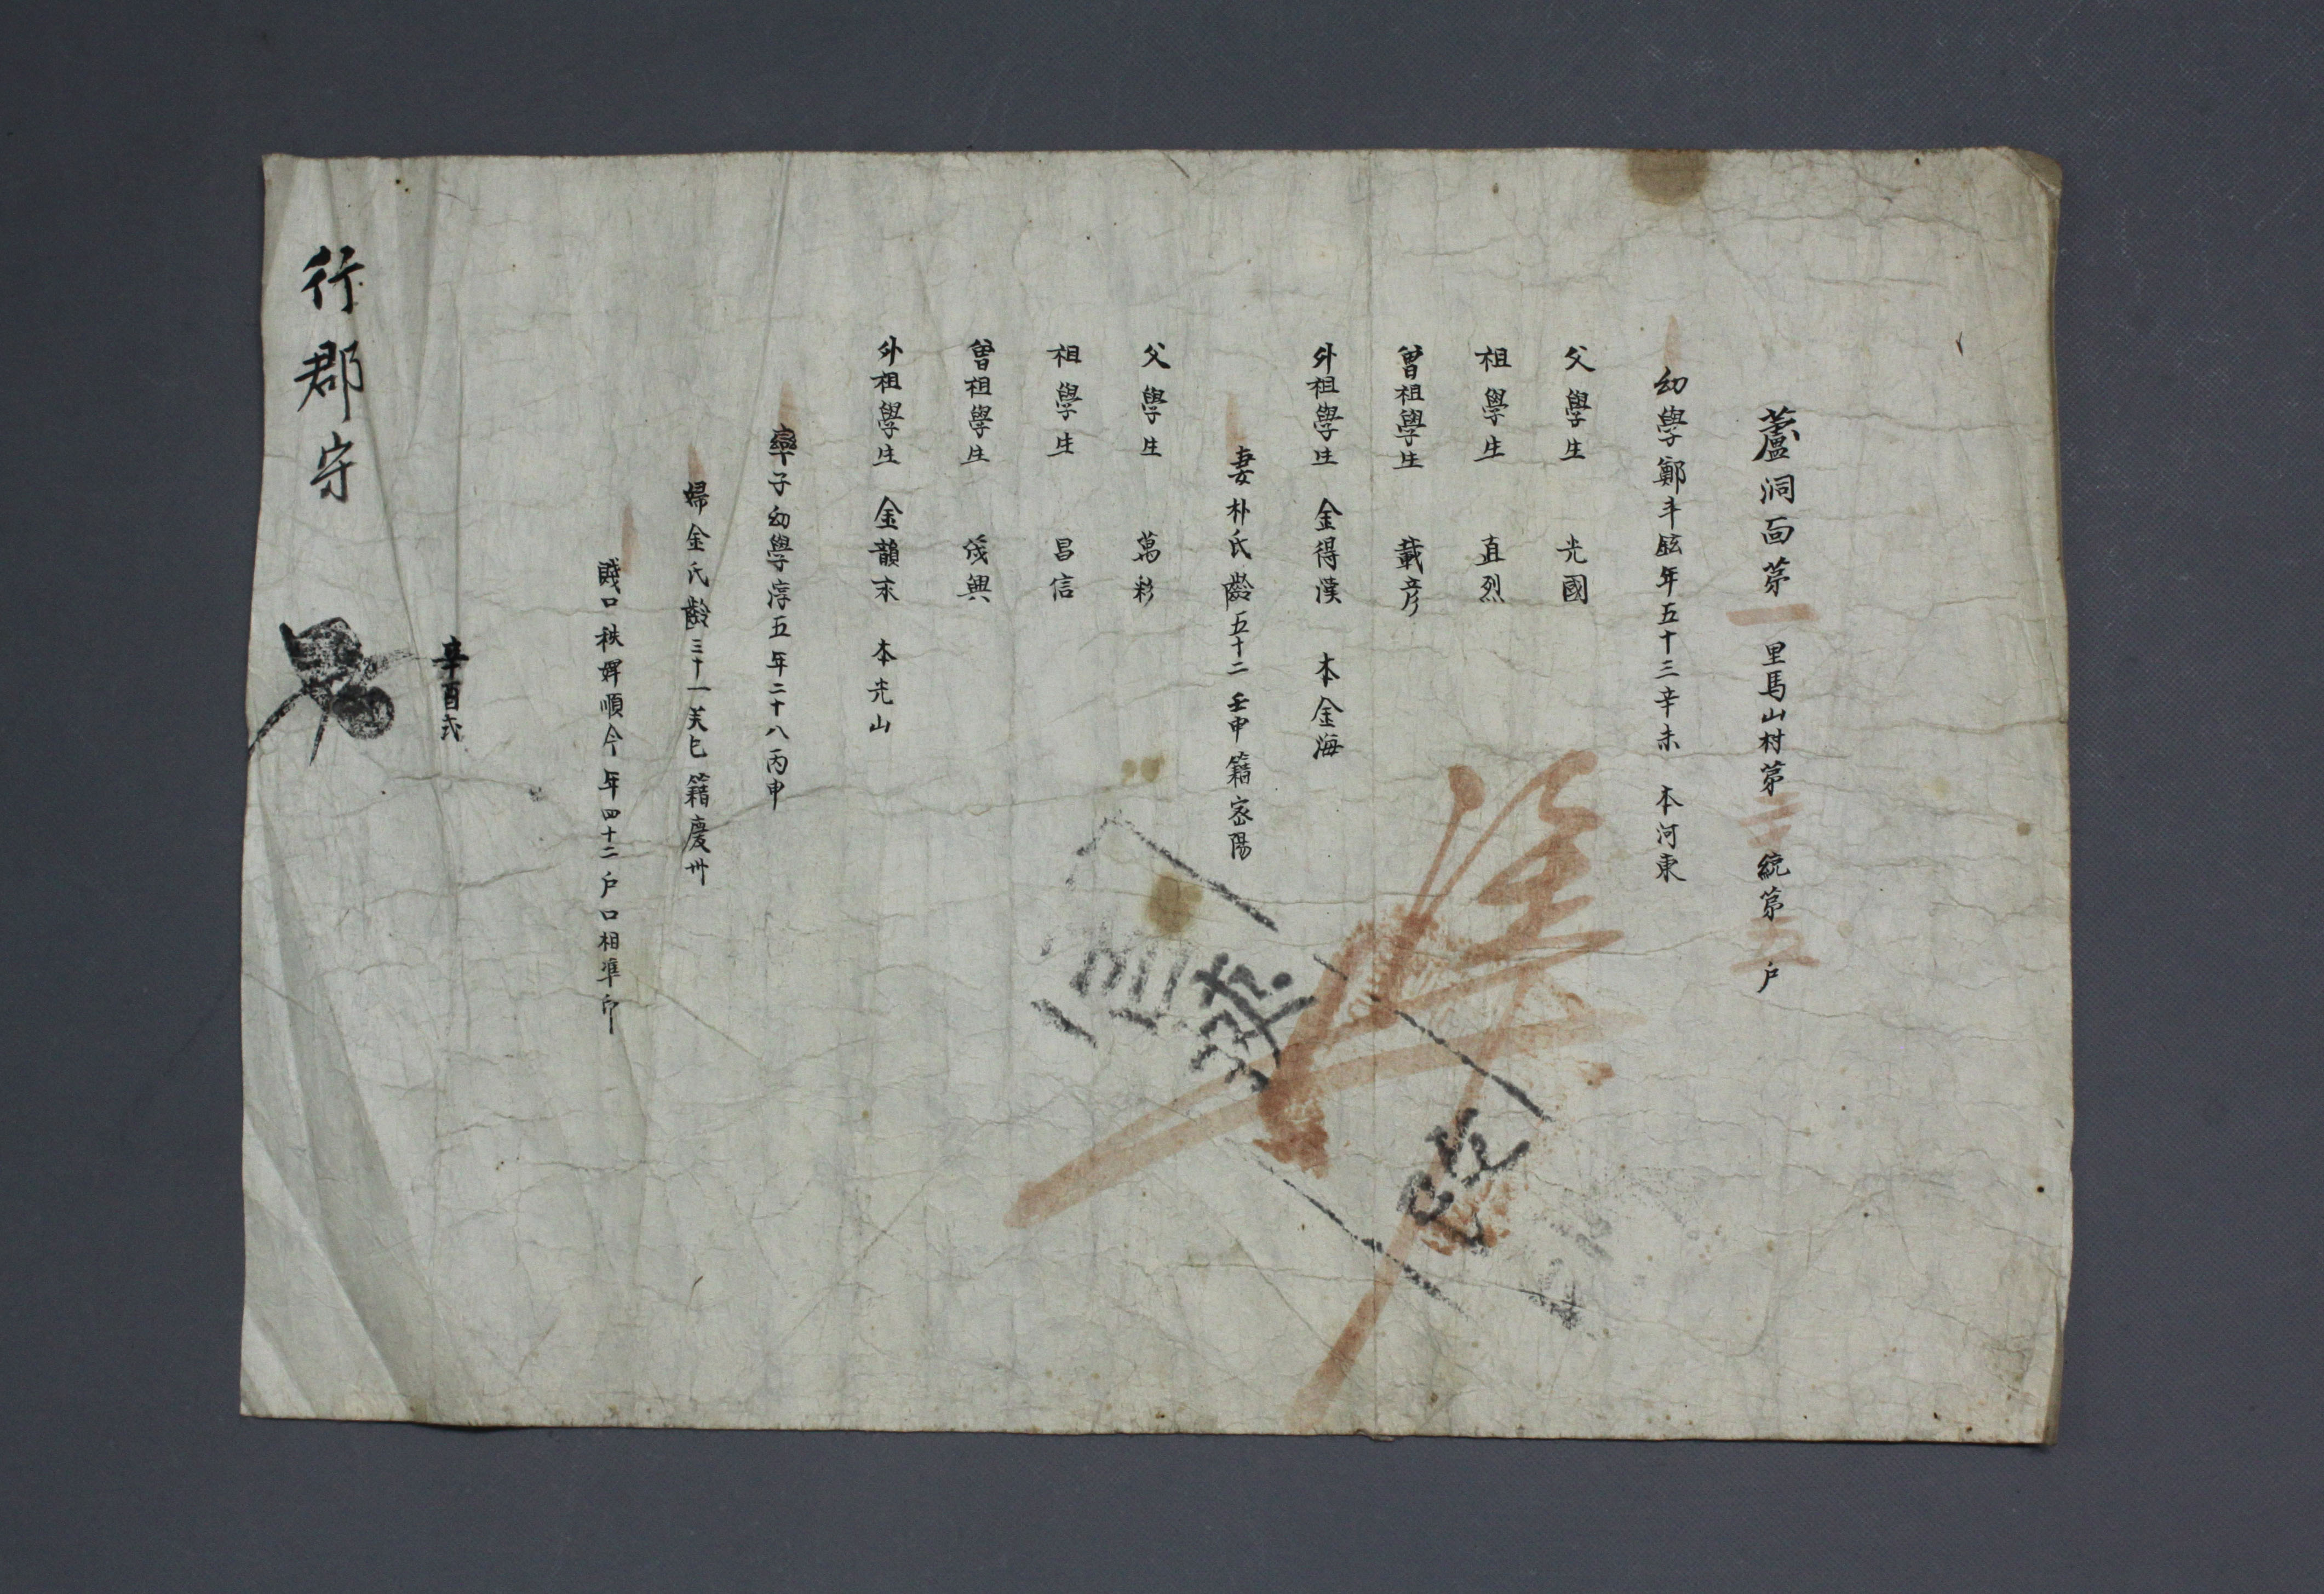 蘆洞面第一里馬山村第二統第五戶
幼學鄭年鉉年五十三辛未 本河東
父學生 光國
祖學生 直烈
曾祖學生 載彦
外祖學生 金得漢 本金海
妻朴氏齡五十二壬申籍密陽
父學生 萬彩
祖學生 昌信
曾祖學生 興
外祖學生 金韻 本光山
率子幼學淳五年二十八丙申
婦金氏齡三十一癸巳籍慶州
賤口秩婢順今年四十二戶口相準印
辛酉式
行郡守